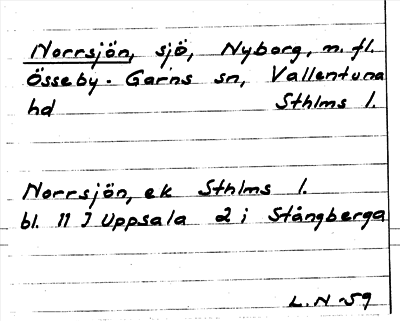 Norrsjön, sjö, Nyborg, m. fl.
Össeby-Garns sn, Vallentuna
hd Sthlms l.
Norrsjön, ek Sthlms l.
bl. 11 J Uppsala 2 i Stångberga
L.N -59